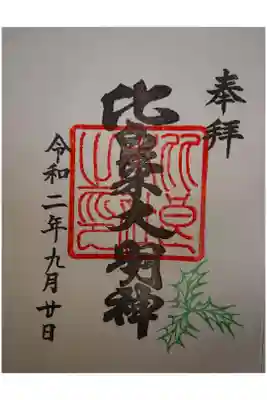 奉拝
比良木大明神
令和二年九月廿日